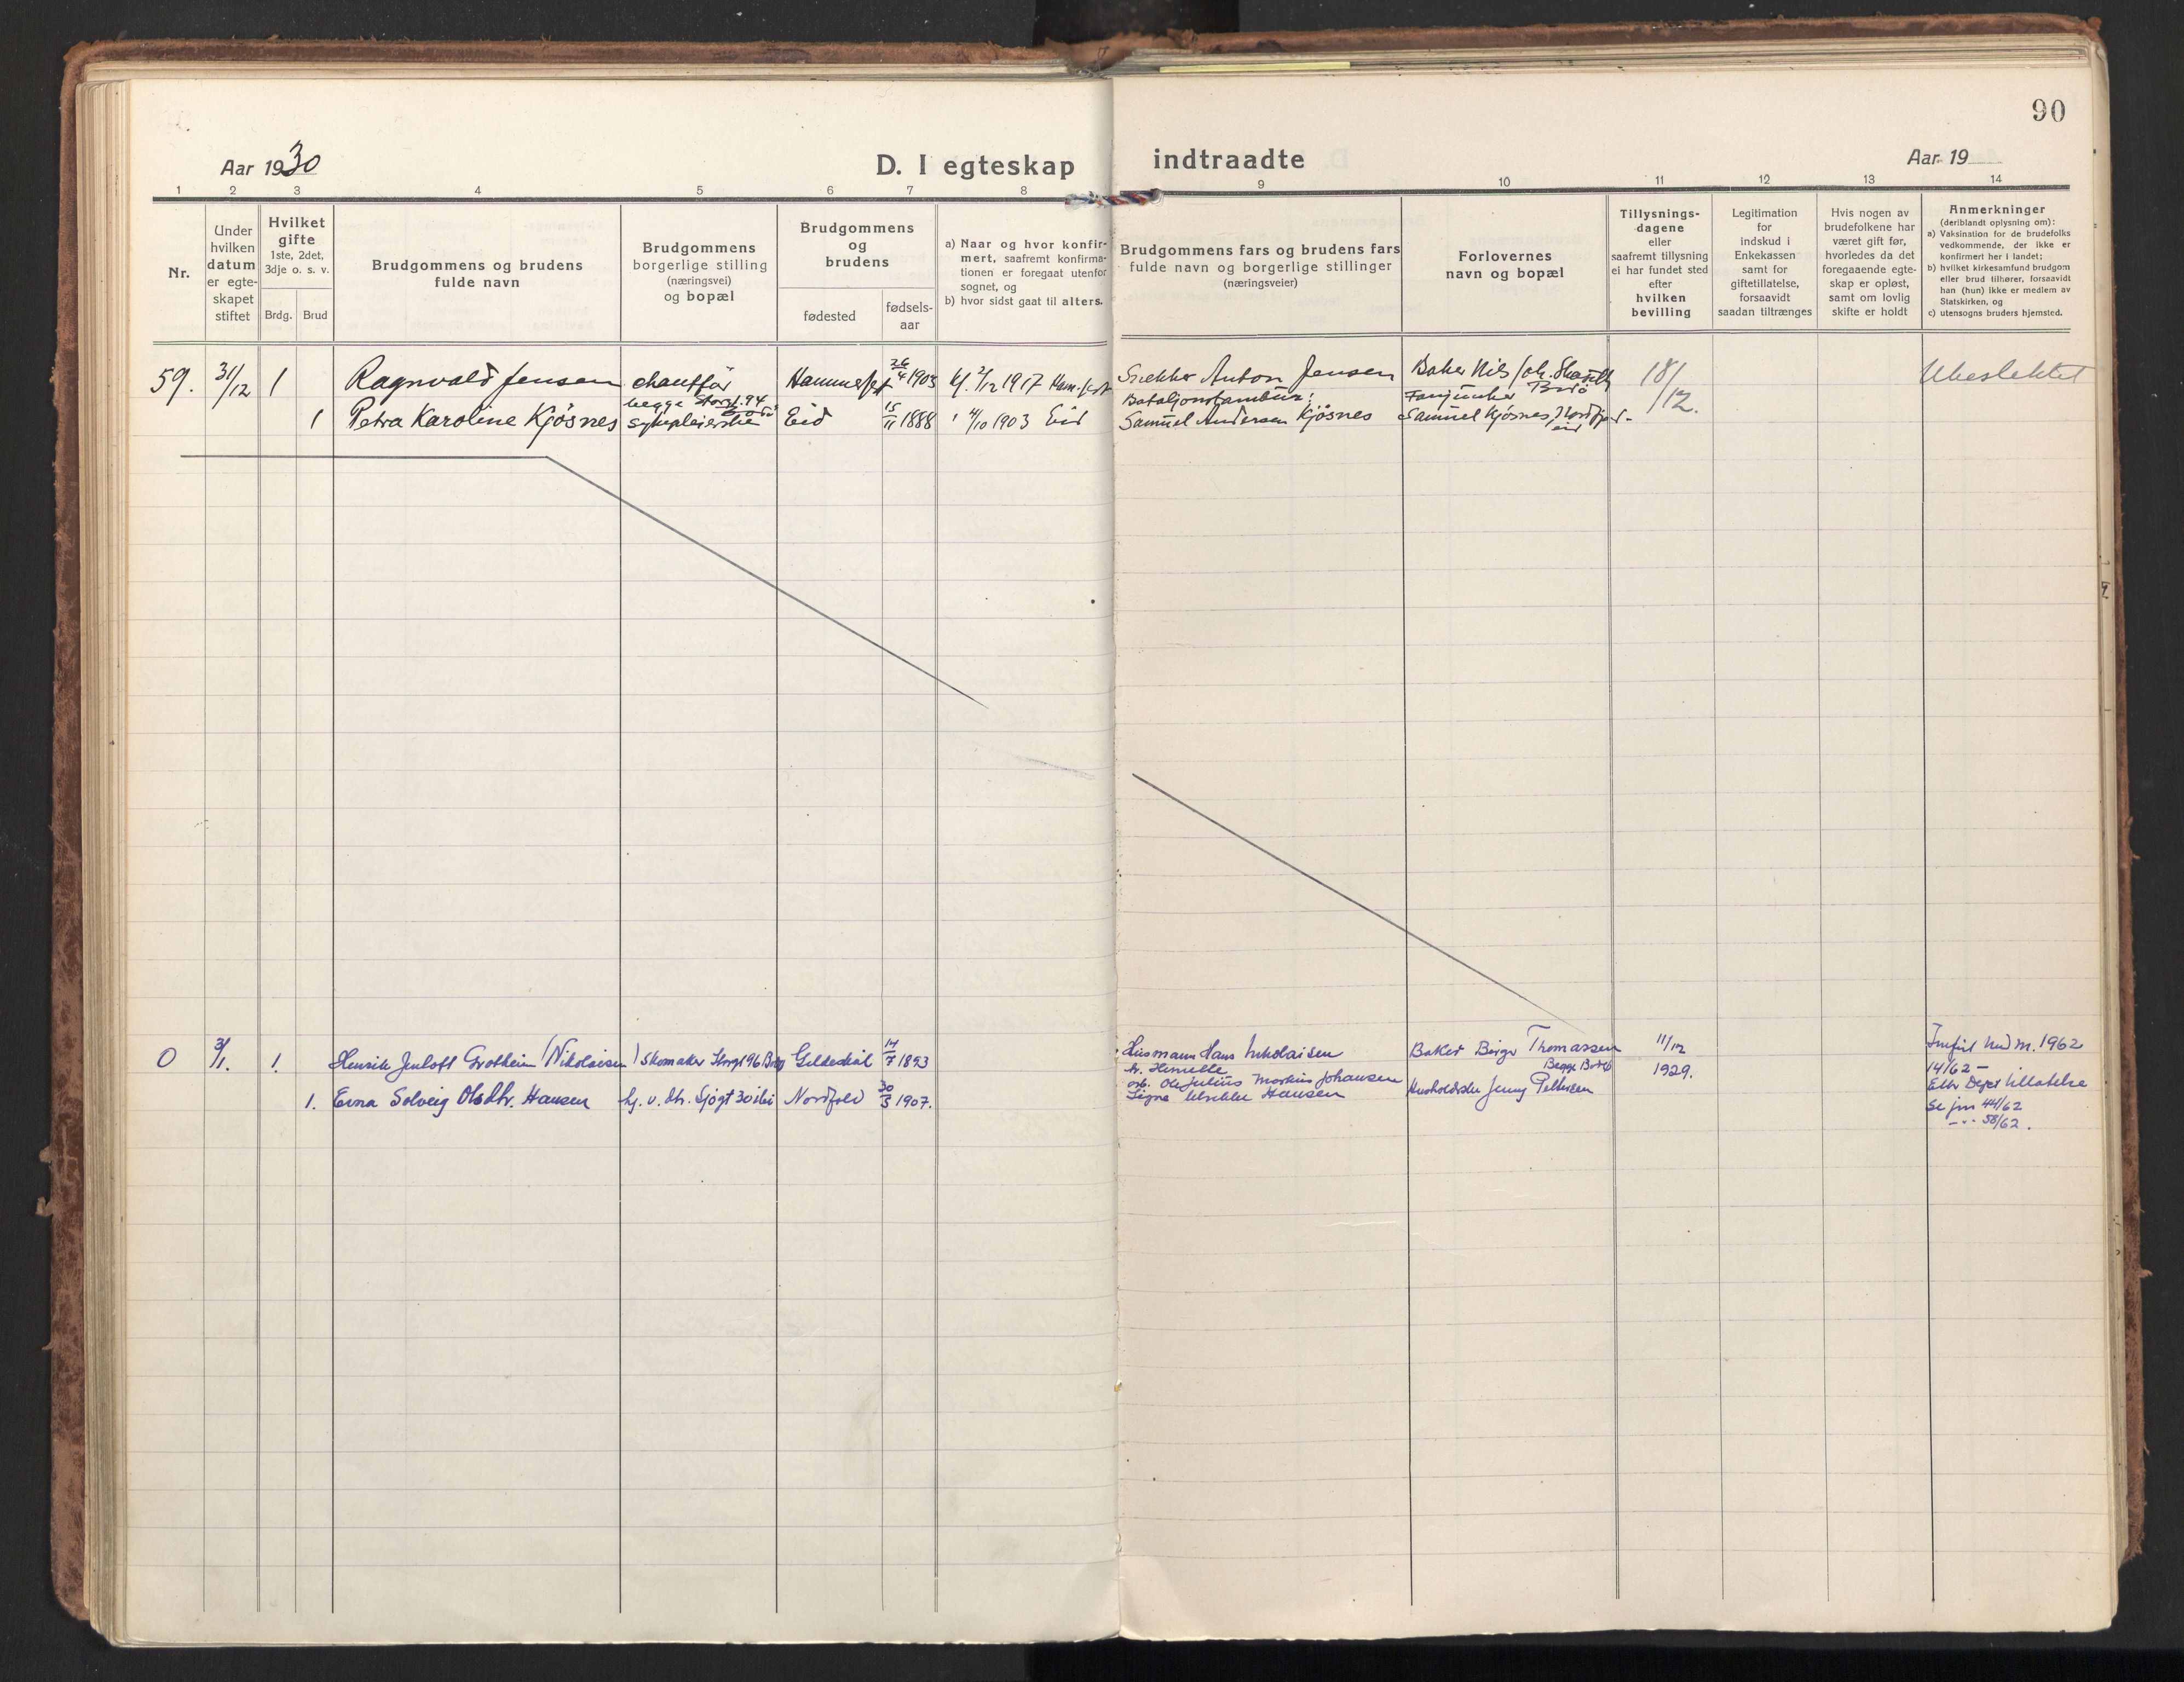 90
Aar 1930
D. I egteskap indtraadte
Aar 19
1 2 3 4 5 6 7 8 9 10 11 12 13 14
Nr.
Under
hvilken
datum
er egte-
skapet
stiftet
Hvilket
gifte
1ste, 2det,
3dje o. s. v.
Brdg. Brud
Brudgommens og brudens
fulde navn
Brudgommens
borgerlige stilling
(næringsvei)
og bopæl
Brudgommens
og
brudens
fødested
fødsels-
aar
a) Naar og hvor konfir-
mert, saafremt konfirma-
tionen er foregaat utenfor
sognet, og
b) hvor sidst gaat til alters.
Brudgommens fars og brudens fars
fulde navn og borgerlige stillinger
(næringsveier)
Forlovernes
navn og bopæl
Tillysnings-
dagene
eller
saafremt tillysning
ei har fundet sted
efter
hvilken
bevilling
Legitimation
for
indskud i
Enkekassen
samt for
giftetillatelse,
forsaavidt
saadan tiltrænges
Hvis nogen av
brudefolkene har
været gift før,
hvorledes da det
foregaaende egte-
skap er opløst,
samt om lovlig
skifte er holdt
Anmerkninger
(deriblandt oplysning om):
a) Vaksination for de brudefolks
vedkommende, der ikke er
konfirmert her i landet;
b) hvilket kirkesamfund brudgom
eller brud tilhører, forsaavidt
han (hun) ikke er medlem av
Statskirken, og
c) utensogns bruders hjemsted.
59. 31/12 1 Ragnvald Jensen chauffør Hammerfest 26/4 1903 kf. 2/12 1917 Ham.fest Snekker Anton Jensen Baker Nils Joh. 18/12. Ubeslektet
begge Storgt. 94 Bodø
Bataljonstambur: Fanjunker Bodø
1 Petra Karoline Kjøsnes sykepleierske Eid 15/11 1888 4/10 1903 Eid Samuel Andersen Kjøsnes Samuel Kjøsnes, Nordfjord-
eid
0 3/1. 1. Henrik Jentoft Grotheim (Nikolaisen) Skomaker Storgt 96 Bodø Gildeskål 14/7 1893 Husmann Hans Nikolaisen Baker Birger Thomassen 11/12 1929. Innført 1962
Begge Bodø
14/62 –
1. Erna Solveig Olsdtr. Hansen hj. v. dtr. Sjøgt 30 ibi Nordfold 30/3 1907. Ole Julius Markus Johansen Husholderske Jenny Pettersen Etter Depts tillatelse
Signe Hansen
Se jnr 44/62
– " – 58/62.